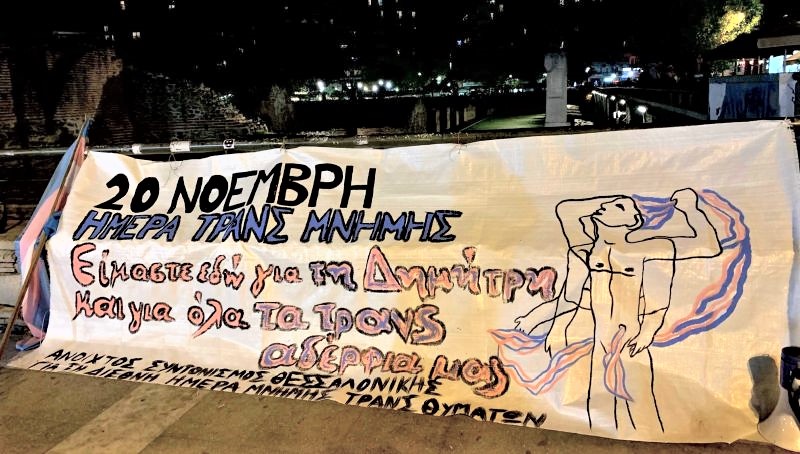 20 ΝΟΕΜΒΡΗ
ΗΜΕΡΑ ΤΡΑΝΣ ΜΝΗΜΗΣ
Είμαστε εδώ για τη Δημήτρη
και για όλα τα τρανς
αδέρφια μας
ΑΝΟΙΧΤΟΣ ΣΥΝΤΟΝΙΣΜΟΣ ΘΕΣΣΑΛΟΝΙΚΗΣ
ΓΙΑ ΤΗ ΔΙΕΘΝΗ ΗΜΕΡΑ ΜΝΗΜΗΣ ΤΡΑΝΣ ΘΥΜΑΤΩΝ